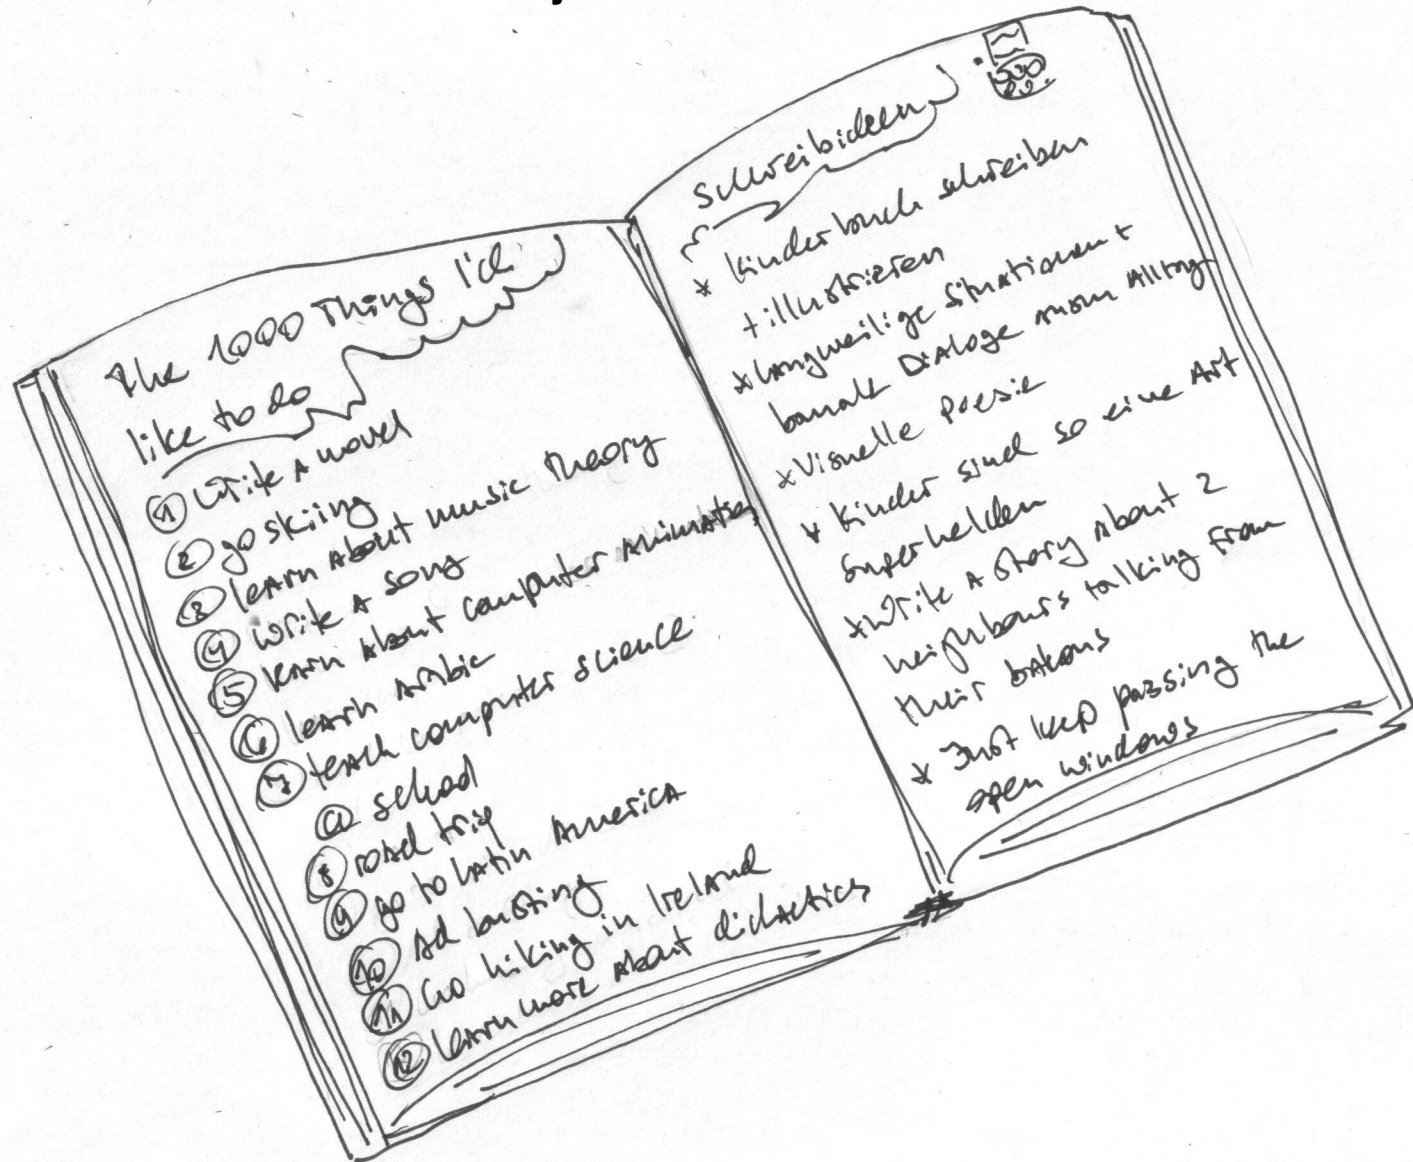 The 1000 Things I'd
like to do
1 write A novel
2 go skiing
3 learn About music theory
4 write A song
5 learn About computer Animation
6 learn Arabic
7 teach computer science
@ school
8 road trip
9 go to Latin America
10 Ad busting
11 Go hiking in Ireland
12 learn more About didactics
Schreibideen
* Kinderbuch schreiben
+ illustrieren
* langweilige Situationen +
banale Dialoge Alltag
* Visuelle Poesie
* Kinder sind so eine Art
Superhelden
* Write A story About 2
neighbours talking from
their balkons
* Just keep passing the
open windows